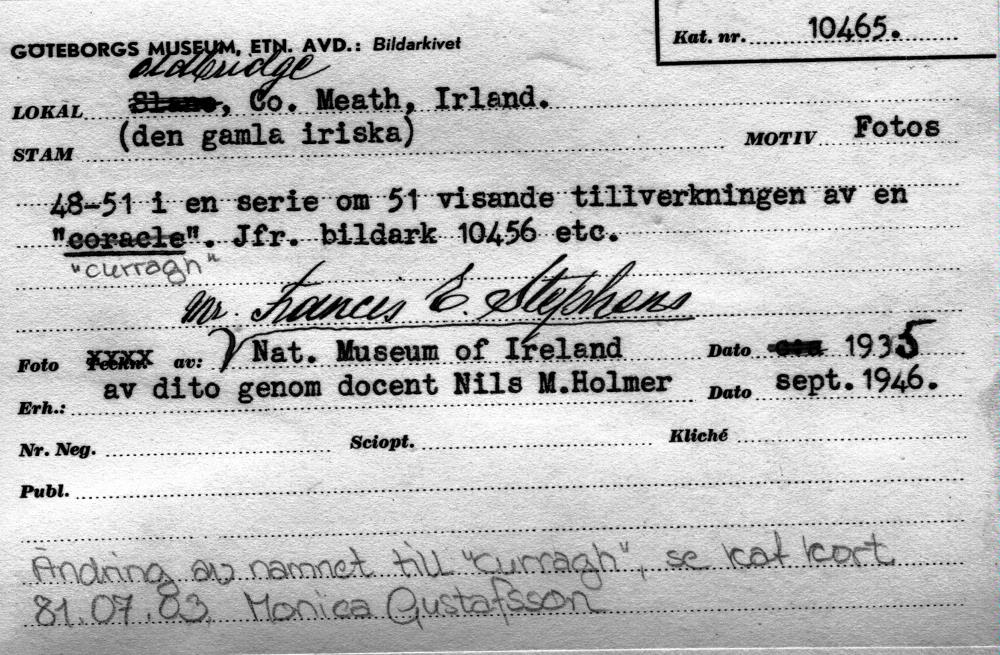 GÖTEBORGS MUSEUM, ETN. AVD.: Bildarkivet
Kat. nr. 10465.
oldbridge
LOKAL Slane, Co. Meath, Irland.
STAM (den gamla iriska) MOTIV Fotos
48-51 i en serie om 51 visande tillverkningen av en
"coracle". Jfr. bildark 10456 etc.
"curragh"
Mr. Francis E. Stephens
Foto av: Nat. Museum of Ireland Dato 1935
Erh.: av dito genom docent Nils M.Holmer Dato sept. 1946.
Nr. Neg. Sciopt. Kliché
Publ.
Ändring av namnet till "curragh", se kat kort
81.07.03. Monica Gustafsson